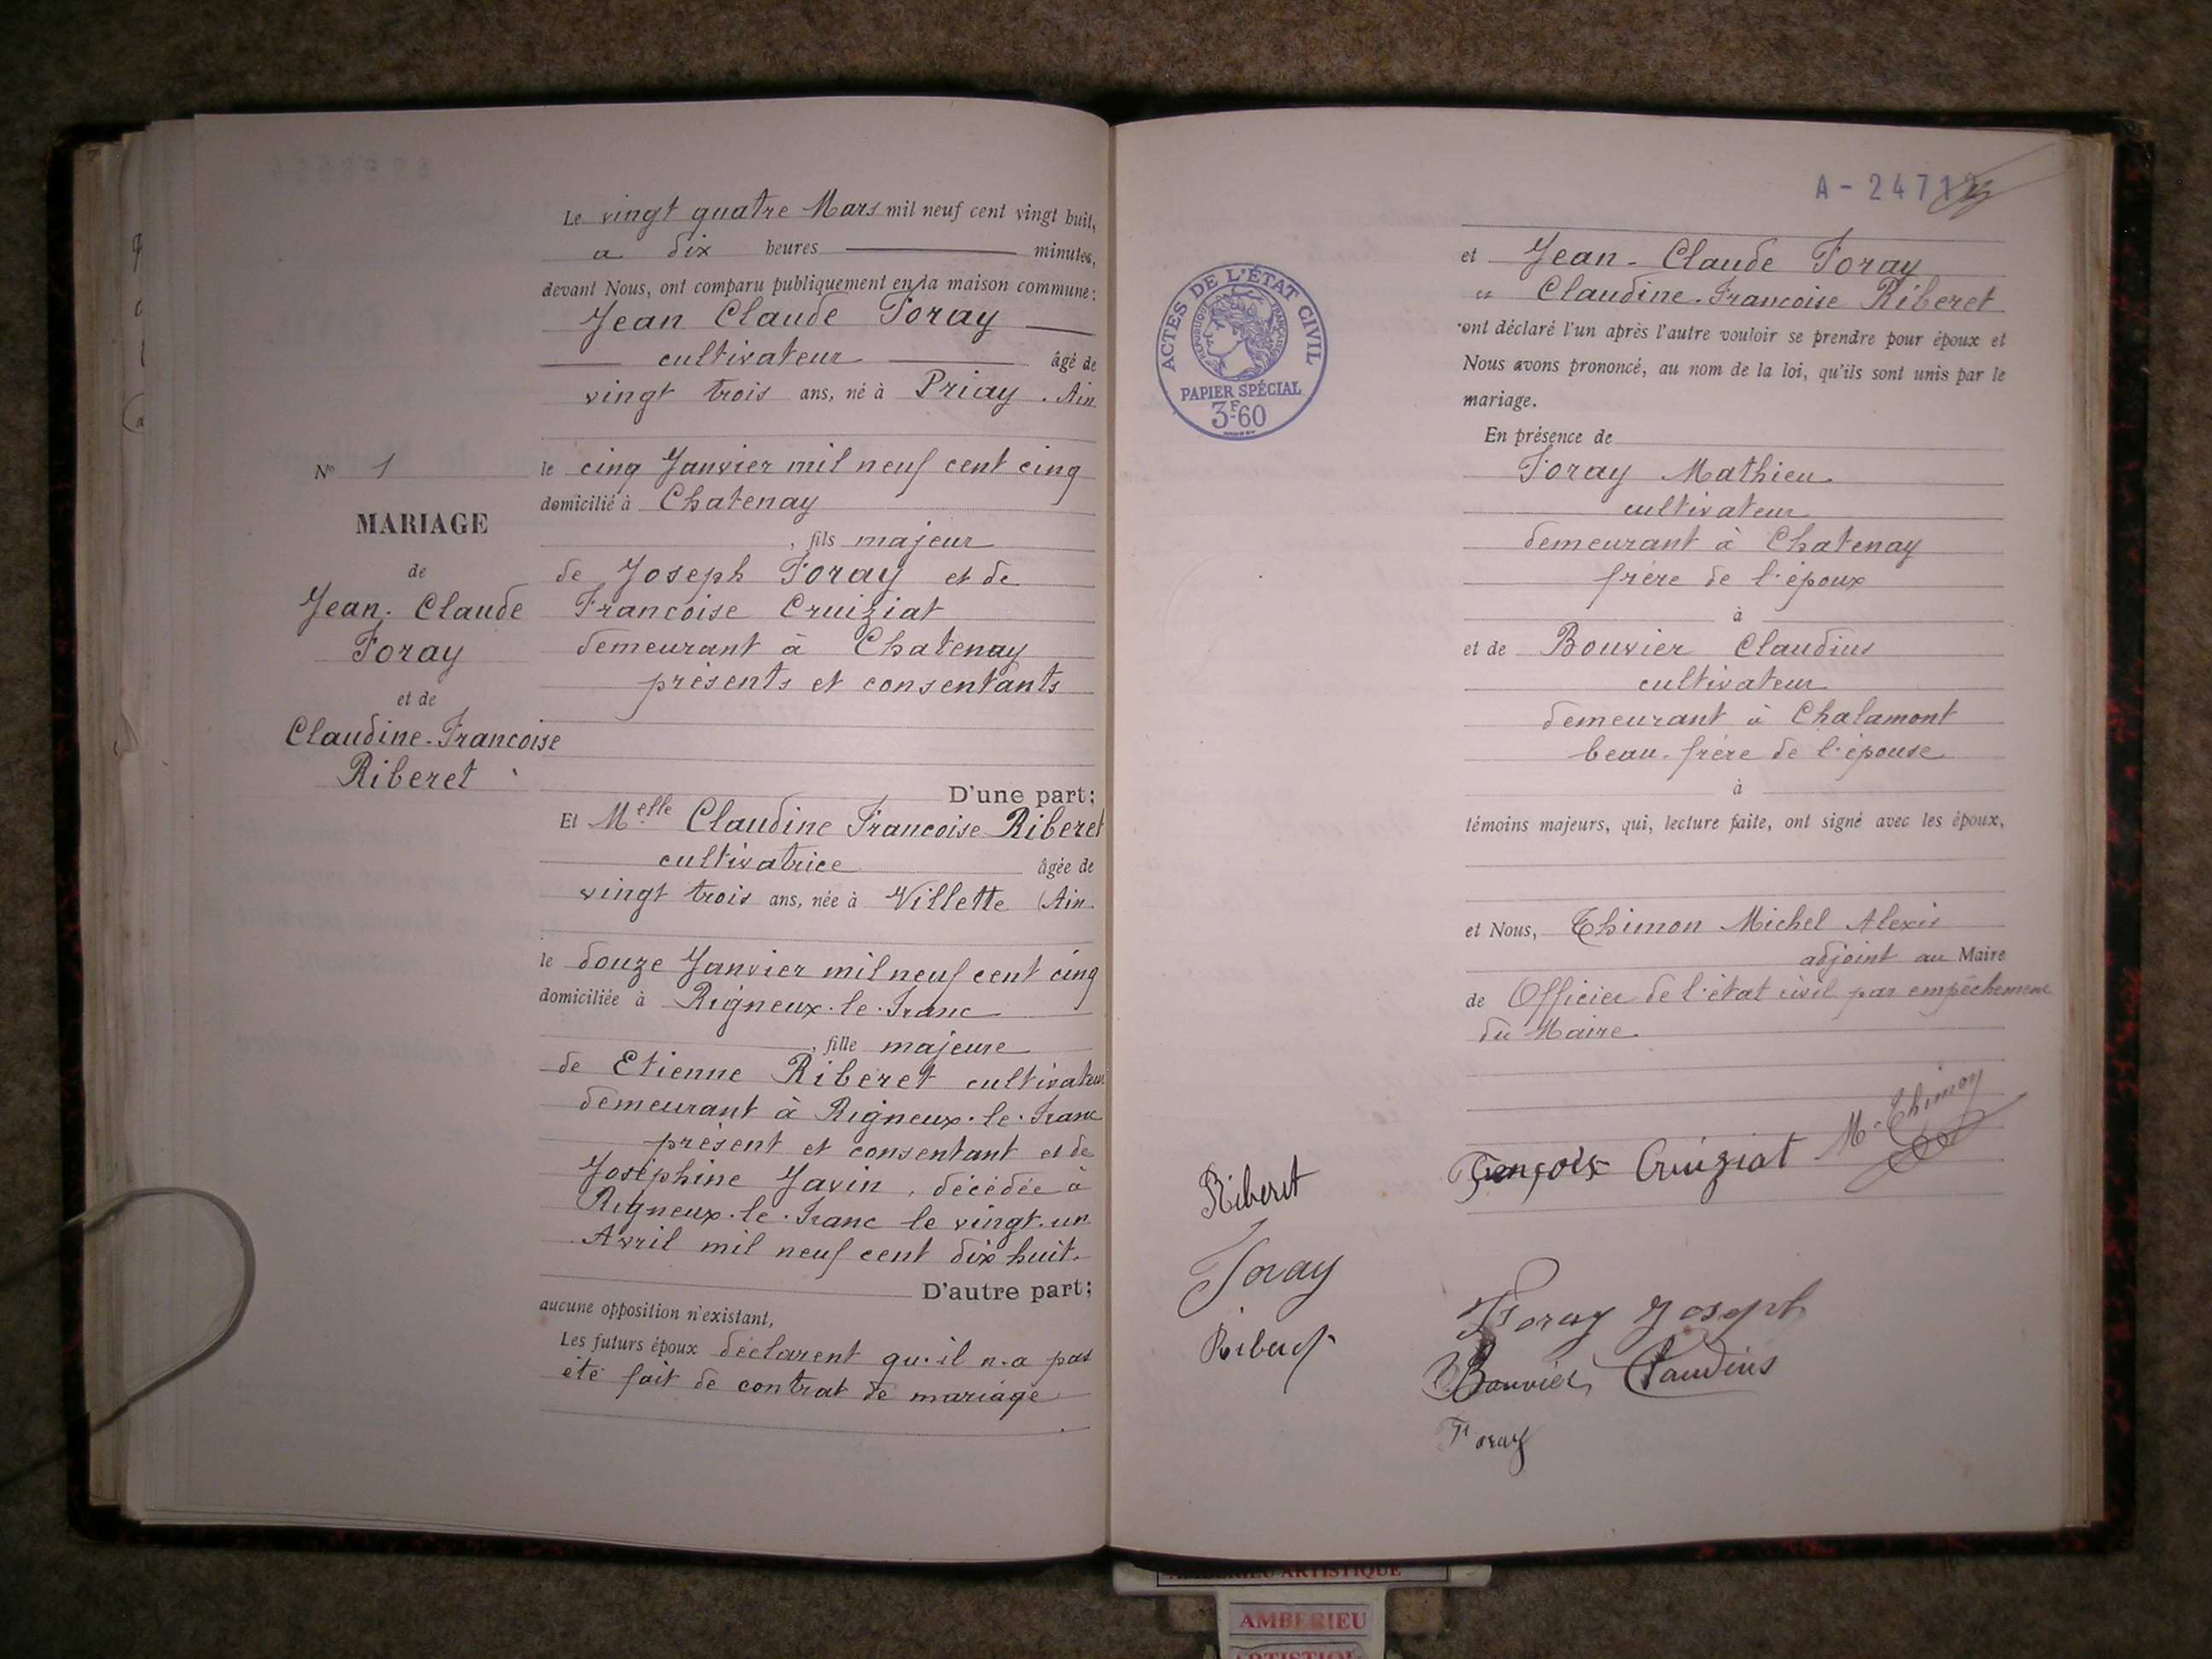 Le vingt quatre Mars mil neuf cent vingt huit,
a dix heures minutes,
devant Nous, ont comparu publiquement en la maison commune:
Jean Claude Foray
cultivateur âgé de
vingt trois ans, né à Priay . Ain
N° 1
MARIAGE
de
Jean. Claude
Foray
et de
Claudine-Francoise
Riberet
le cinq Janvier mil neuf cent cinq
domicilié à Chatenay
, fils majeur
de Joseph Foray et de
Francoise Cruiziat
demeurant à Chatenay
présents et consentants
D'une part:
Et Melle Claudine Francoise Riberet
cultivatrice âgée de
vingt trois ans, née à Villette (Ain
le douze Janvier mil neuf cent cinq
domiciliée à Rigneux-le-Franc
, fille majeure
de Etienne Riberet cultivateur
demeurant à Rigneux-le-Franc
présent et consentant et de
Joséphine Javin, décédée à
Rigneux-le-Franc le vingt-un
Avril mil neuf cent dix huit.
D'autre part;
aucune opposition n'existant,
Les futurs époux déclarent qu'il n'a pas
été fait de contrat de mariage
A-2471
ACTES DE L'ÉTAT CIVIL
RÉPUBLIQUE FRANÇAISE
PAPIER SPÉCIAL
3F60
et Jean-Claude Foray
et Claudine-Francoise Riberet
ont déclaré l'un après l'autre vouloir se prendre pour époux et
Nous avons prononcé, au nom de la loi, qu'ils sont unis par le
mariage.
En présence de
Foray Mathieu
cultivateur
demeurant à Chatenay
frère de l'époux
à
et de Bouvier Claudius
cultivateur
demeurant à Chalamont
beau-frère de l'épouse
à
témoins majeurs, qui, lecture faite, ont signé avec les époux,
et Nous, Thimon Michel Alexis
adjoint au Maire
de Officier de l'état civil par empêchement
du Maire
M. Thimon
Françoise Cruiziat
Riberet
Foray
Riberet
Foray Joseph
Bouvier Claudius
Foray
AMBERIEU ARTISTIQUE
AMBERIEU
ARTISTIQUE